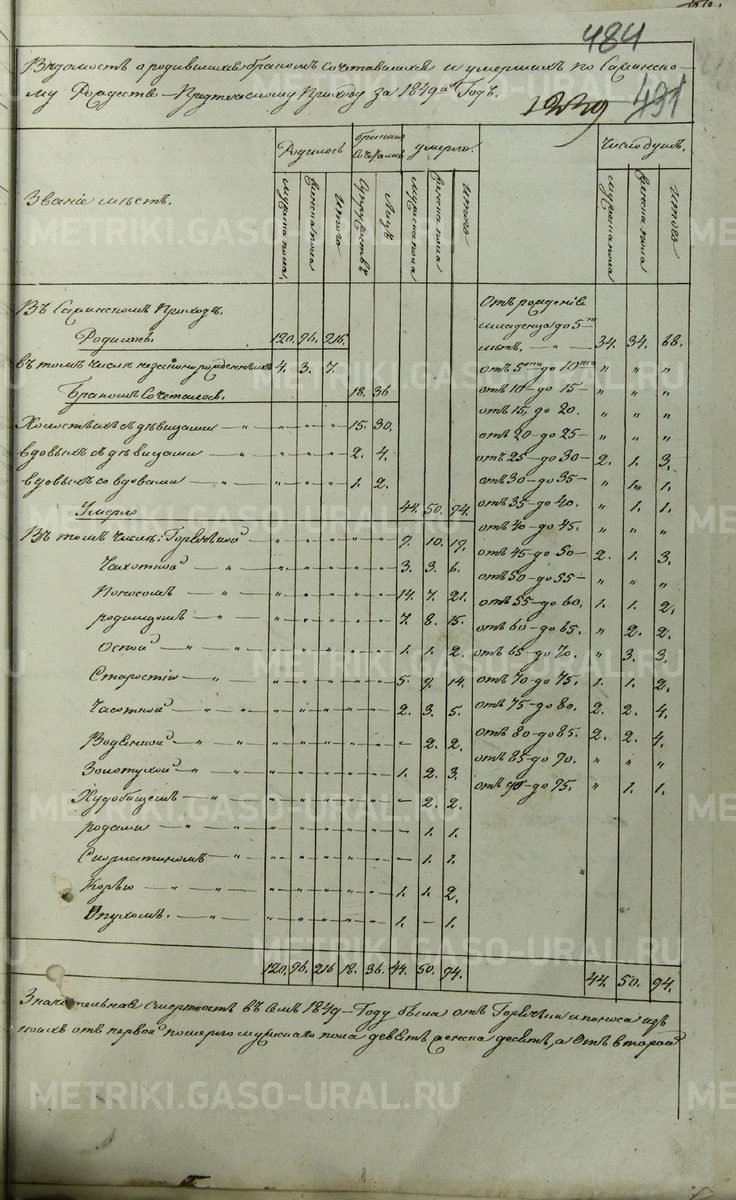 484
Вѣдомость о родившихся бракомъ сочетавшихся и умершихъ по Саринско-
му Рождество-Предтеческому Приходу за 1849й Годъ.
491
Званіе мѣстъ.
Родилось
мужска пола.
женска пола
итого
бракомъ сочеталось
Супружествъ
Лицъ
умерло.
мужска пола
женска пола
итого
Число душъ.
мужска пола
женска пола
итого
Въ Саринскомъ Приходѣ.
Родилось. 120. 96. 216.
въ томъ числѣ незаконнорожденныхъ 4. 3. 7.
Бракомъ Сочеталось. 18. 36
Холостыхъ съ дѣвицами — „ — „ „ „ 15. 30.
вдовыхъ съ дѣвицами — „ — „ „ „ 2. 4.
вдовыхъ со вдовами — „ — „ „ „ 1. 2.
Умерло 44. 50. 94.
Въ томъ числѣ: Горячкой — „ „ „ „ „ 9. 10. 19.
Чахоткой — „ — „ „ „ „ „ 3. 3. 6.
Поносомъ — „ — „ „ „ „ „ 14. 7. 21.
родимцомъ — „ — „ „ „ „ „ 7. 8. 15.
Оспой — „ — „ „ „ „ „ 1. 1. 2.
Старостію — „ — „ „ „ „ „ 5. 9. 14.
„ — „ „ „ „ „ 2. 3. 5.
Водяной — „ — „ „ „ „ „ — 2. 2.
Золотухой — „ — „ „ „ „ „ 1. 2. 3.
— „ — „ „ „ „ „ — 2. 2.
родами — „ — „ „ „ „ „ — 1. 1.
— „ — „ „ „ „ „ — 1. 1.
Корью — „ — „ „ „ „ „ 1. 1. 2.
Опухомъ. — „ — „ „ „ „ „ 1. — 1.
120. 96. 216 18. 36. 44. 50. 94.
Отъ рожденія
младенца до 5ти
лѣтъ. — „ — 34. 34. 68.
отъ 5ти до 10ти „ „ „
отъ 10 — до 15 — „ „ „
отъ 15, до 20. „ „ „
отъ 20 — до 25 — „ „ „
отъ 25 — до 30 — 2. 1. 3.
отъ 30 — до 35 — „ 1. 1.
отъ 35 — до 40. „ 1. 1.
отъ 40 — до 45. „ „ „
отъ 45 — до 50 — 2. 1. 3.
отъ 50 — до 55 — „ „ „
отъ 55 — до 60. 1. 1. 2.
отъ 60 — до 65. „ 2. 2.
отъ 65 — до 70. „ 3. 3.
отъ 70 — до 75. 1. 1. 2.
отъ 75 — до 80. 2. 2. 4.
отъ 80 — до 85. 2. 2. 4.
отъ 85 — до 90. „ „ „
отъ 90 — до 95. „ 1. 1.
44. 50. 94.
Значительная смертность въ семъ 1849 — Году была отъ Горячки и поноса изъ
коихъ отъ первой померло мужскаго пола девять женска десять, а Отъ второй
METRIKI.GASO-URAL.RU